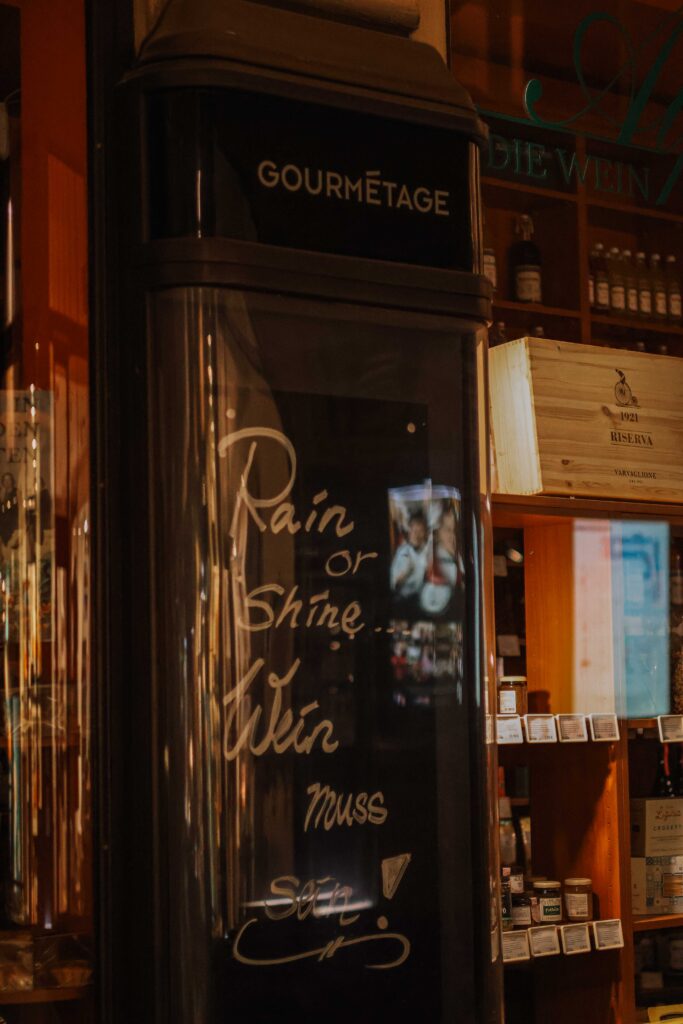 GOURMÉTAGE
DIE WEIN
1921
RISERVA
VARVAGLIONE
Rain
or
Shine...
Wein
muss
sein!